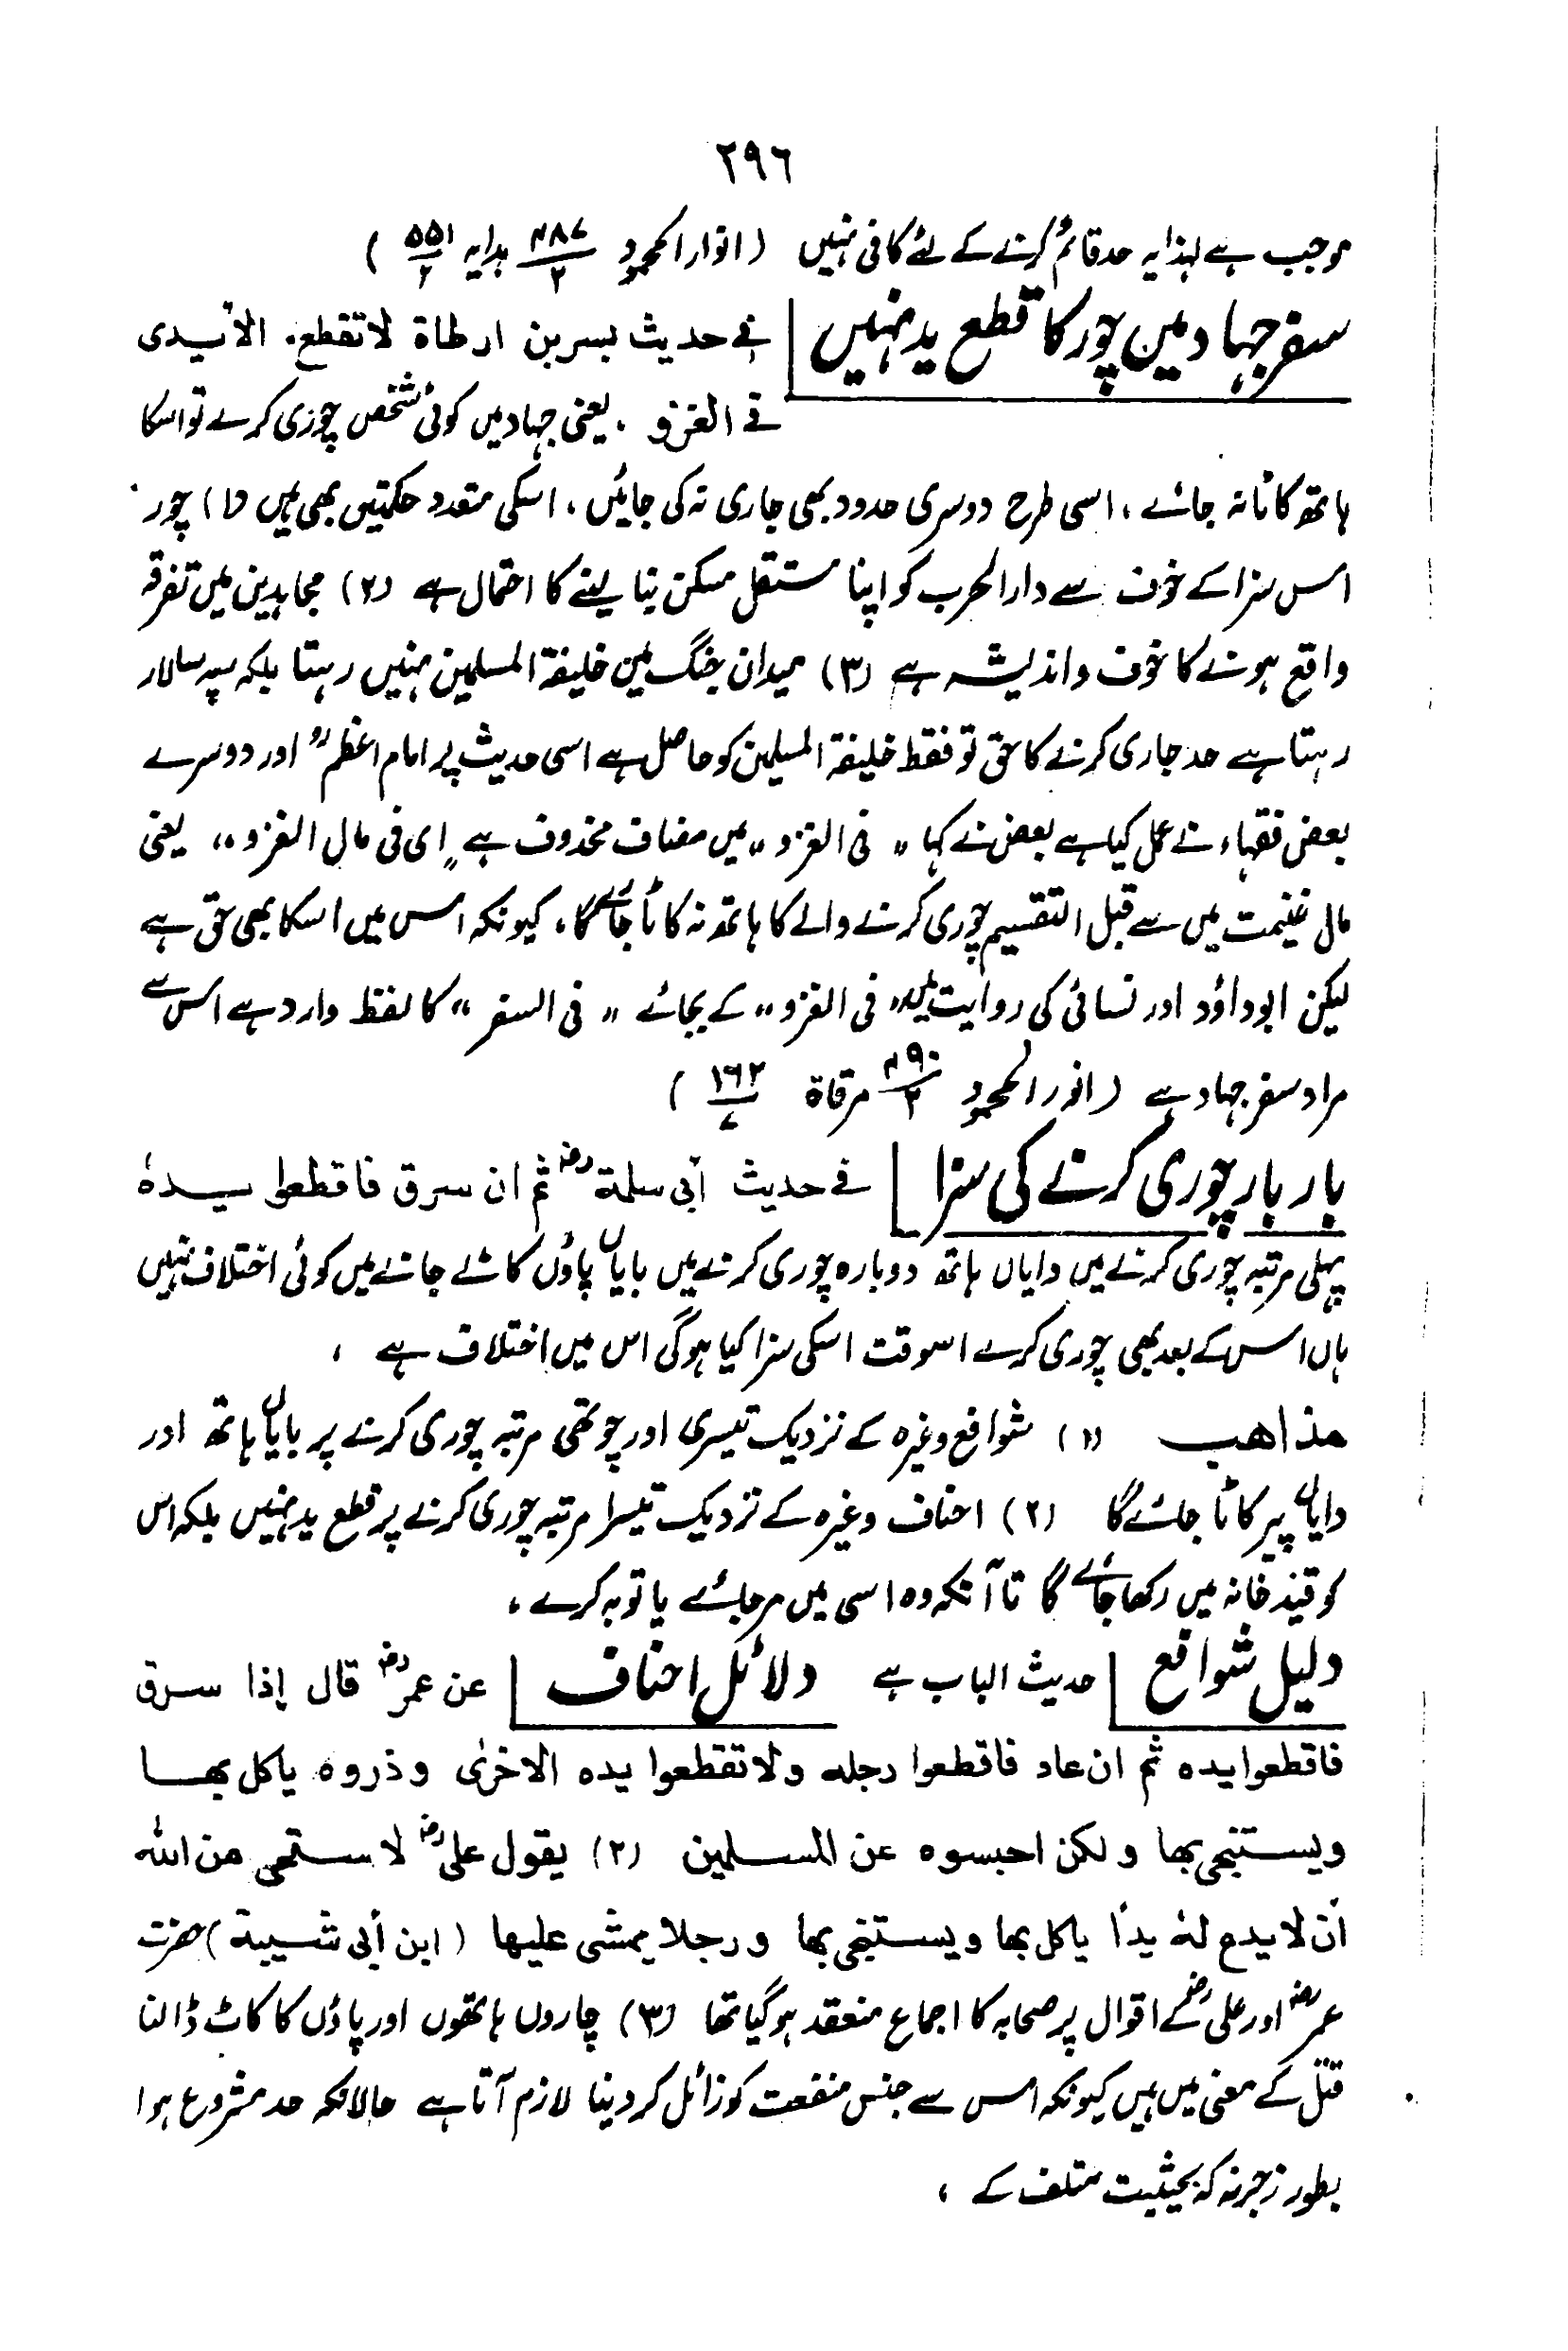 ٢٩٦
موجب ہے لہذا یہ حد قائم کرنے کے لئے کافی نہیں (انوار المحمود ٤٨٧/٢ ہدایہ ٥٥١/٢)
سفر جہاد میں چور کا قطع ید نہیں | فی حدیث بسر بن ارطاۃ لا تقطع الأیدی
فی الغزو ۔ یعنی جہاد میں کوئی شخص چوری کرے تو اسکا
ہاتھ کاٹا نہ جائے ، اسی طرح دوسری حدود بھی جاری نہ کی جائیں ، اسکی متعدد حکمتیں بھی ہیں (١) چور
اس سزا کے خوف سے دار الحرب کو اپنا مستقل مسکن بنا لینے کا احتمال ہے (٢) مجاہدین میں تفرقہ
واقع ہونے کا خوف و اندیشہ ہے (٣) میدان جنگ میں خلیفۃ المسلمین نہیں رہتا بلکہ سپہ سالار
رہتا ہے حد جاری کرنے کا حق تو فقط خلیفۃ المسلمین کو حاصل ہے اسی حدیث پر امام اعظمؒ اور دوسرے
بعض فقہاء نے عمل کیا ہے بعض نے کہا " فی الغزو " میں مضاف محذوف ہے " ای فی مال الغزو " یعنی
مال غنیمت میں سے قبل التقسیم چوری کرنے والے کا ہاتھ نہ کاٹا جائے گا ، کیونکہ اس میں اسکا بھی حق ہے
لیکن ابوداؤد اور نسائی کی روایت میں " فی الغزو " کے بجائے " فی السفر " کا لفظ وارد ہے اس سے
مراد سفر جہاد ہے (انوار المحمود ٤٩٠/٢ مرقاۃ ١٦٢/٧)
بار بار چوری کرنے کی سزا | فی حدیث أبی سلمۃؓ ثم ان سرق فاقطعوا یدہٗ
پہلی مرتبہ چوری کرنے میں دایاں ہاتھ دوبارہ چوری کرنے میں بایاں پاؤں کاٹے جانے میں کوئی اختلاف نہیں
ہاں اس کے بعد بھی چوری کرے اسوقت اسکی سزا کیا ہوگی اس میں اختلاف ہے ،
مذاھب (١) شوافع وغیرہ کے نزدیک تیسری اور چوتھی مرتبہ چوری کرنے پر بایاں ہاتھ اور
دایاں پیر کاٹا جائے گا (٢) احناف وغیرہ کے نزدیک تیسرا مرتبہ چوری کرنے پر قطع ید نہیں بلکہ اس
کو قید خانہ میں رکھا جائے گا تا آنکہ وہ اسی میں مر جائے یا توبہ کرے ،
دلیل شوافع | حدیث الباب ہے دلائل احناف | عن عمرؓ قال إذا سرق
فاقطعوا یدہ ثم ان عاد فاقطعوا رجلہ ولا تقطعوا یدہ الاخریٰ وذروہ یاکل بھا
ویستنجی بھا ولکن احبسوہ عن المسلمین (٢) یقول علیؓ لا ستحی من اللہ
أن لا یدع لہٗ یداً یاکل بھا ویستنجی بھا ورجلا یمشی علیھا (ابن أبی شیبۃ) حضرت
عمرؓ اور علیؓ کے اقوال پر صحابہ کا اجماع منعقد ہو گیا تھا (٣) چاروں ہاتھوں اور پاؤں کا کاٹ ڈالنا
قتل کے معنی میں ہیں کیونکہ اس سے جنس منفعت کو زائل کر دینا لازم آتا ہے حالانکہ حد مشروع ہوا
بطور زجر نہ کہ بحیثیت متلف کے ،